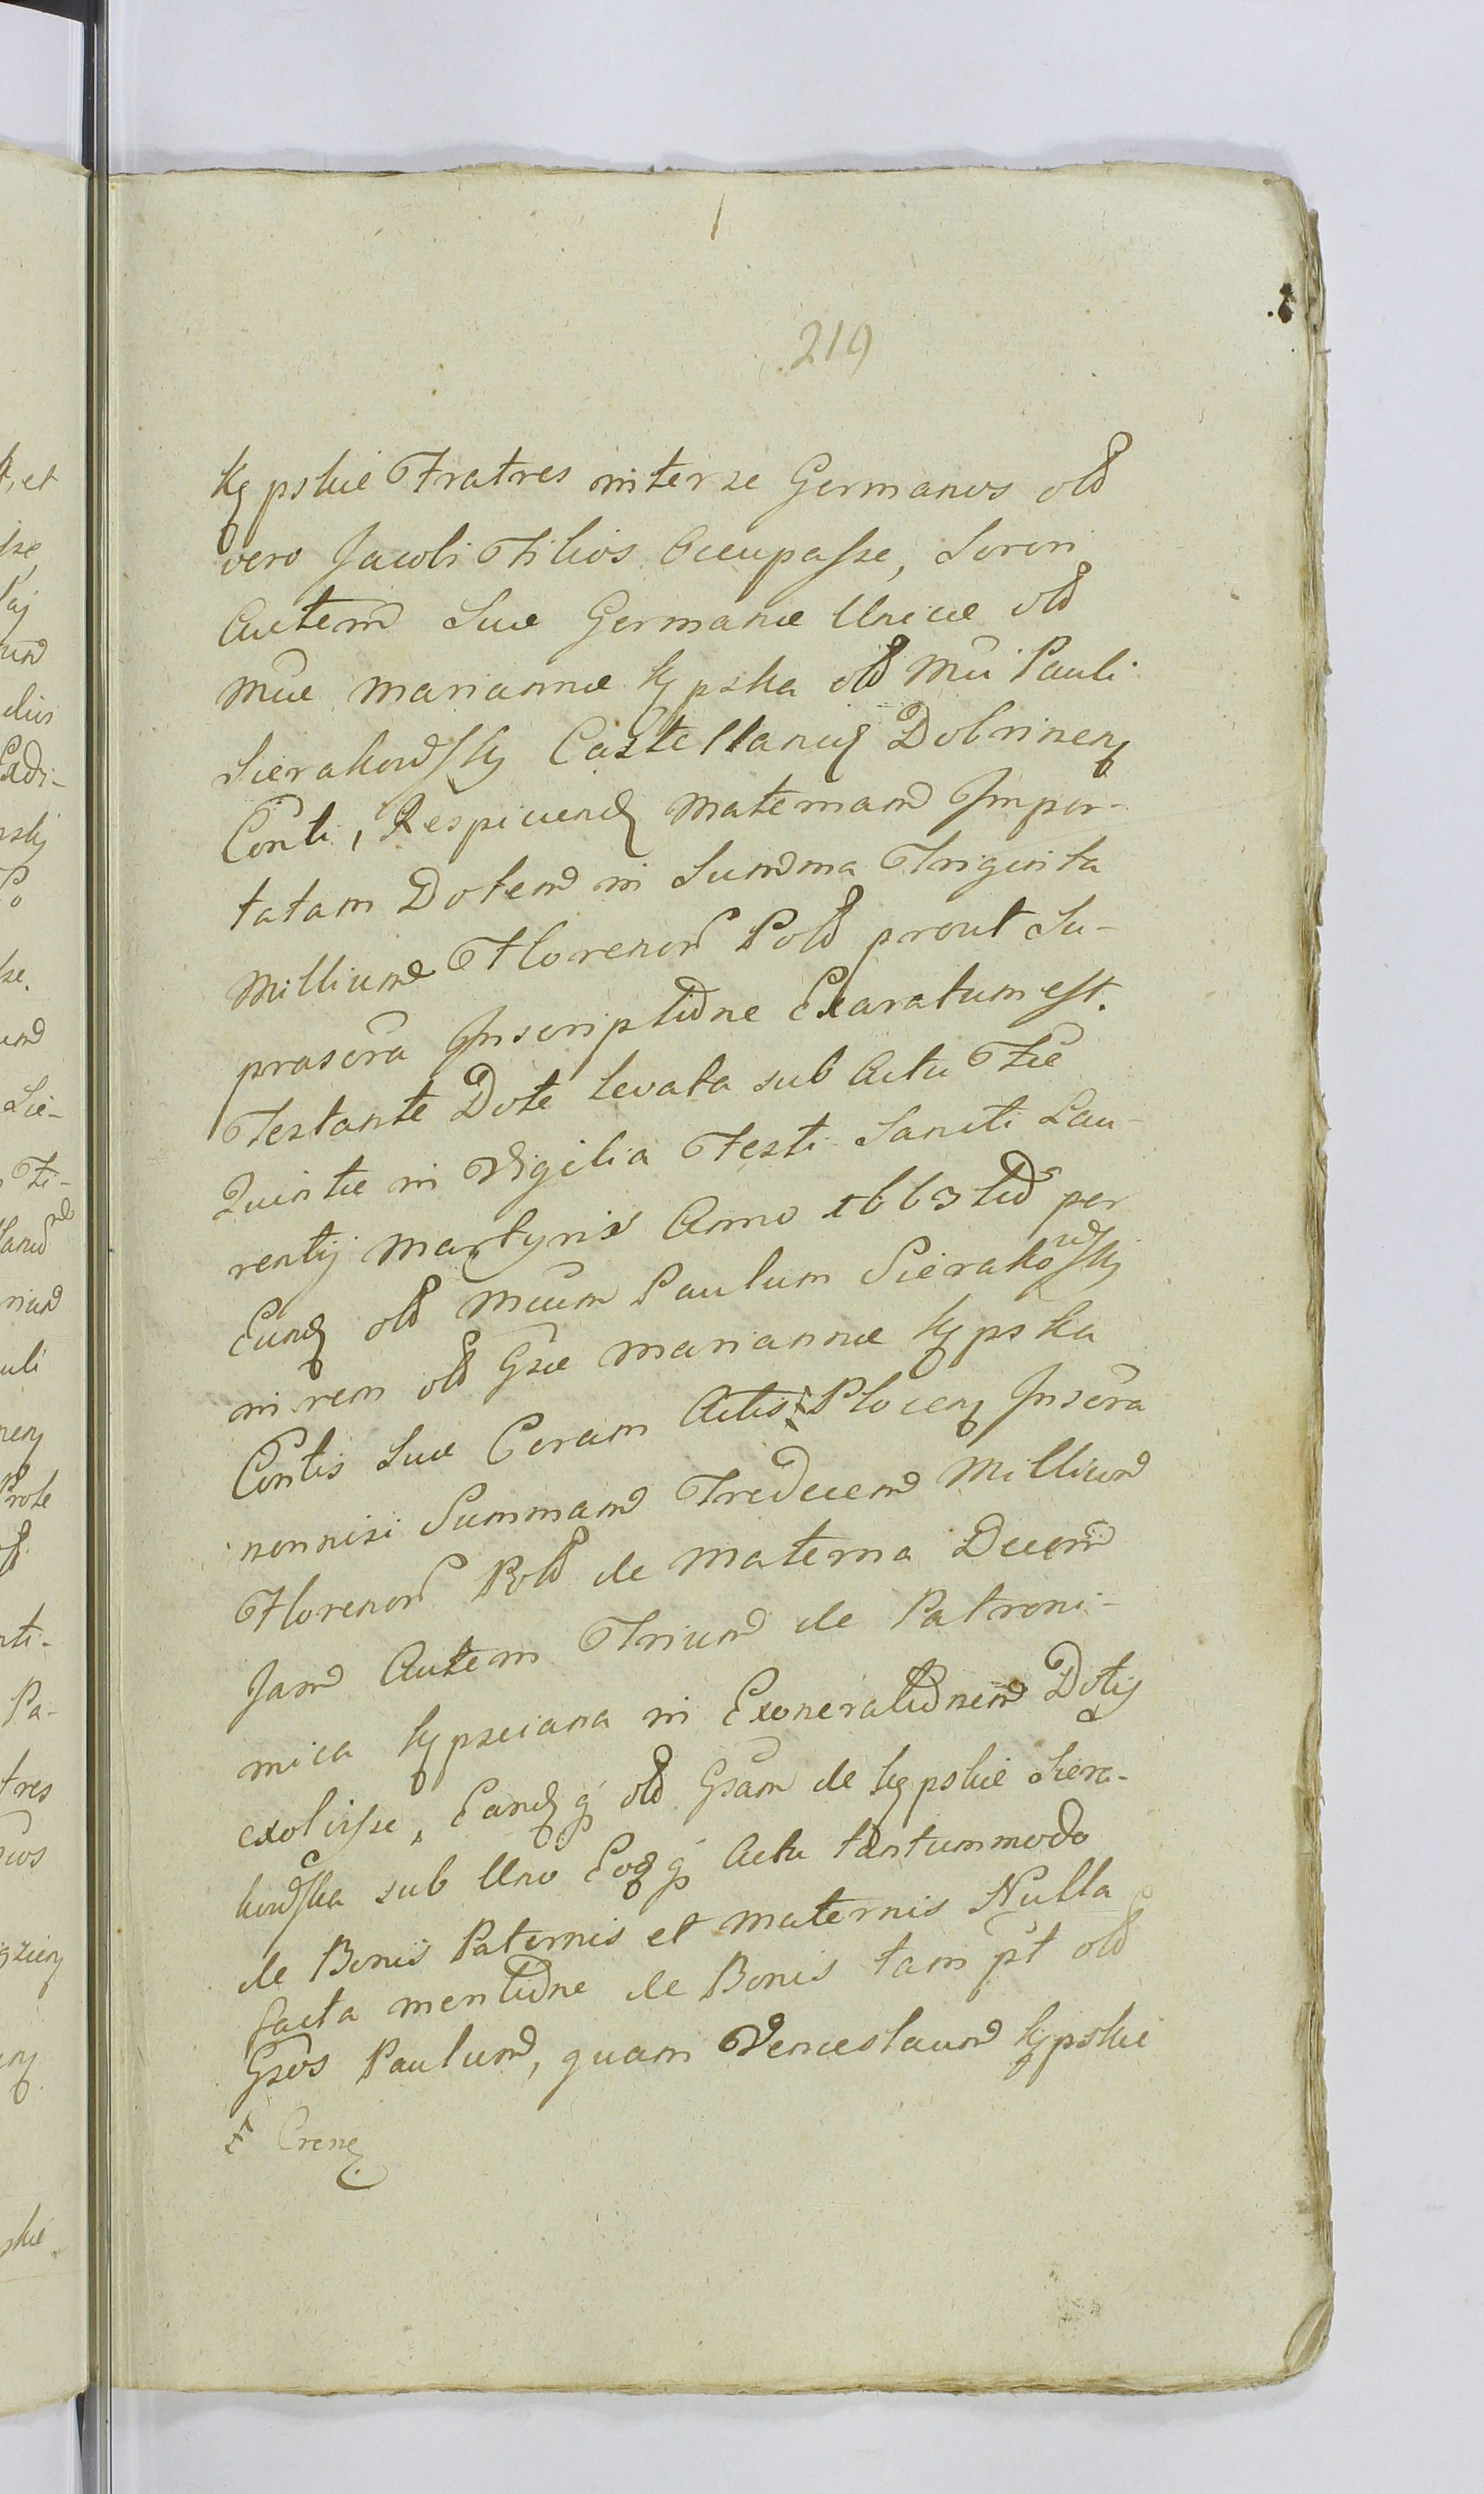 219
Kępskie Fratres inter se Germanos olỉ
vero Jacobi Filios Occupasse, Sorori
Autem Suæ Germanæ Unicæ olỉ
Mũæ Mariannæ Kępska olỉ Mũi Pauli
Sierakowsky Castellanid Dobrinenß
Conti, Respiciend Maternam Impor-
tatam Dotem in Summa Triginta
Millium Floreno℞ Poll prout Su-
prascra Inscriptione Exaratum est.
Testante Dote levata sub Actu Fæ
Quintæ in Vigilia Festi Sancti Lau-
rentij Martyris Anno 1663tio per
Eund olỉ Mũum Paulum Sierakowsky
in rem olỉ Gsæ Mariannæ Kępska
Contis Suæ Coram Actis ҂ Plocenß Inscra
nonnisi Summam Tredecem Millium
Floreno℞ Poll de Materna Decem
Jam Autem Trium de Patroni-
mica Kępsciana in Exonerationem Dotis
exolvisse, Eandq olỉ Gsam de Kępskie Siera-
kowska sub Uno Eodq Actu tantummodo
de Bonis Paternis et Maternis Nulla
facta mentione de Bonis tam pt olỉ
Gsos Paulum, quam Venceslaum Kępskie
҂ Crenß